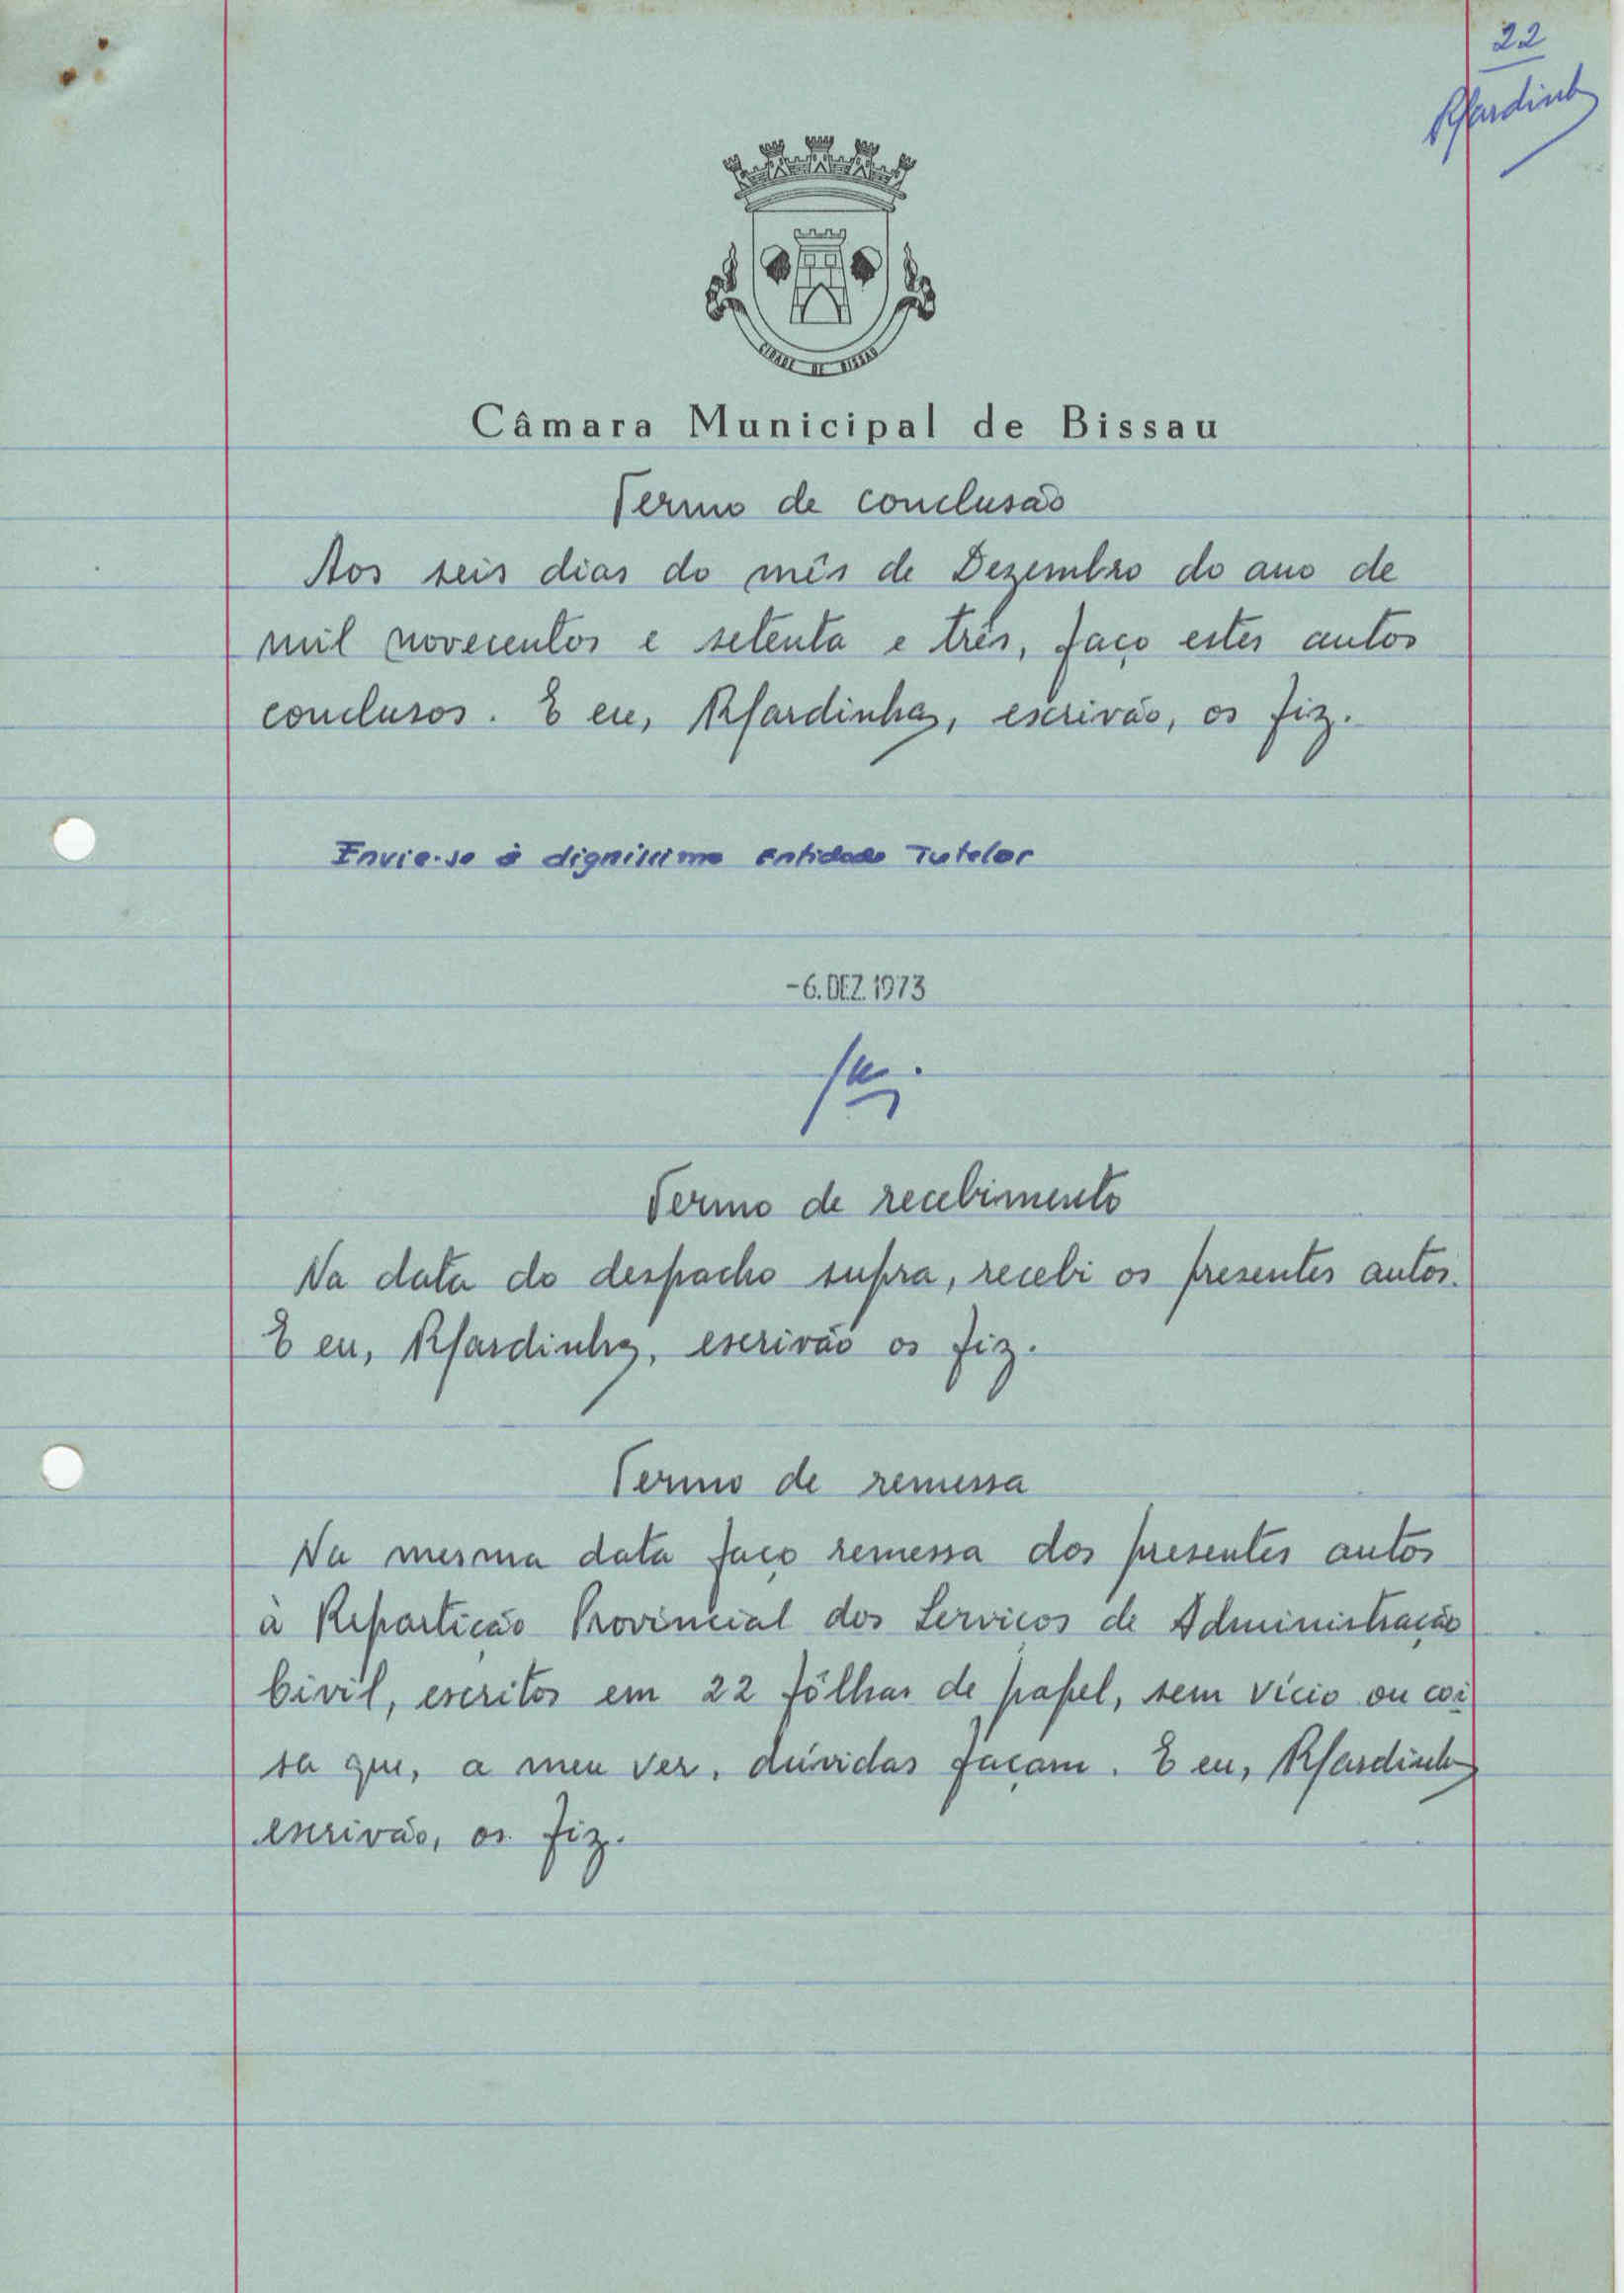 22
Rfardinha
CIDADE DE BISSAU
Câmara Municipal de Bissau
Termo de conclusão
Aos seis dias do mês de Dezembro do ano de
mil novecentos e setenta e três, faço estes autos
conclusos. E eu, Rfardinha, escrivão, os fiz.
Envie-se à digníssima Entidade Tutelar
-6. DEZ. 1973
Termo de recebimento
Na data do despacho supra, recebi os presentes autos.
E eu, Rfardinha, escrivão os fiz.
Termo de remessa
Na mesma data faço remessa dos presentes autos
à Repartição Provincial dos Serviços de Administração
Civil, escritos em 22 fôlhas de papel, sem vício ou coi
sa que, a meu ver, dúvidas façam. E eu, Rfardinha
escrivão, os fiz.